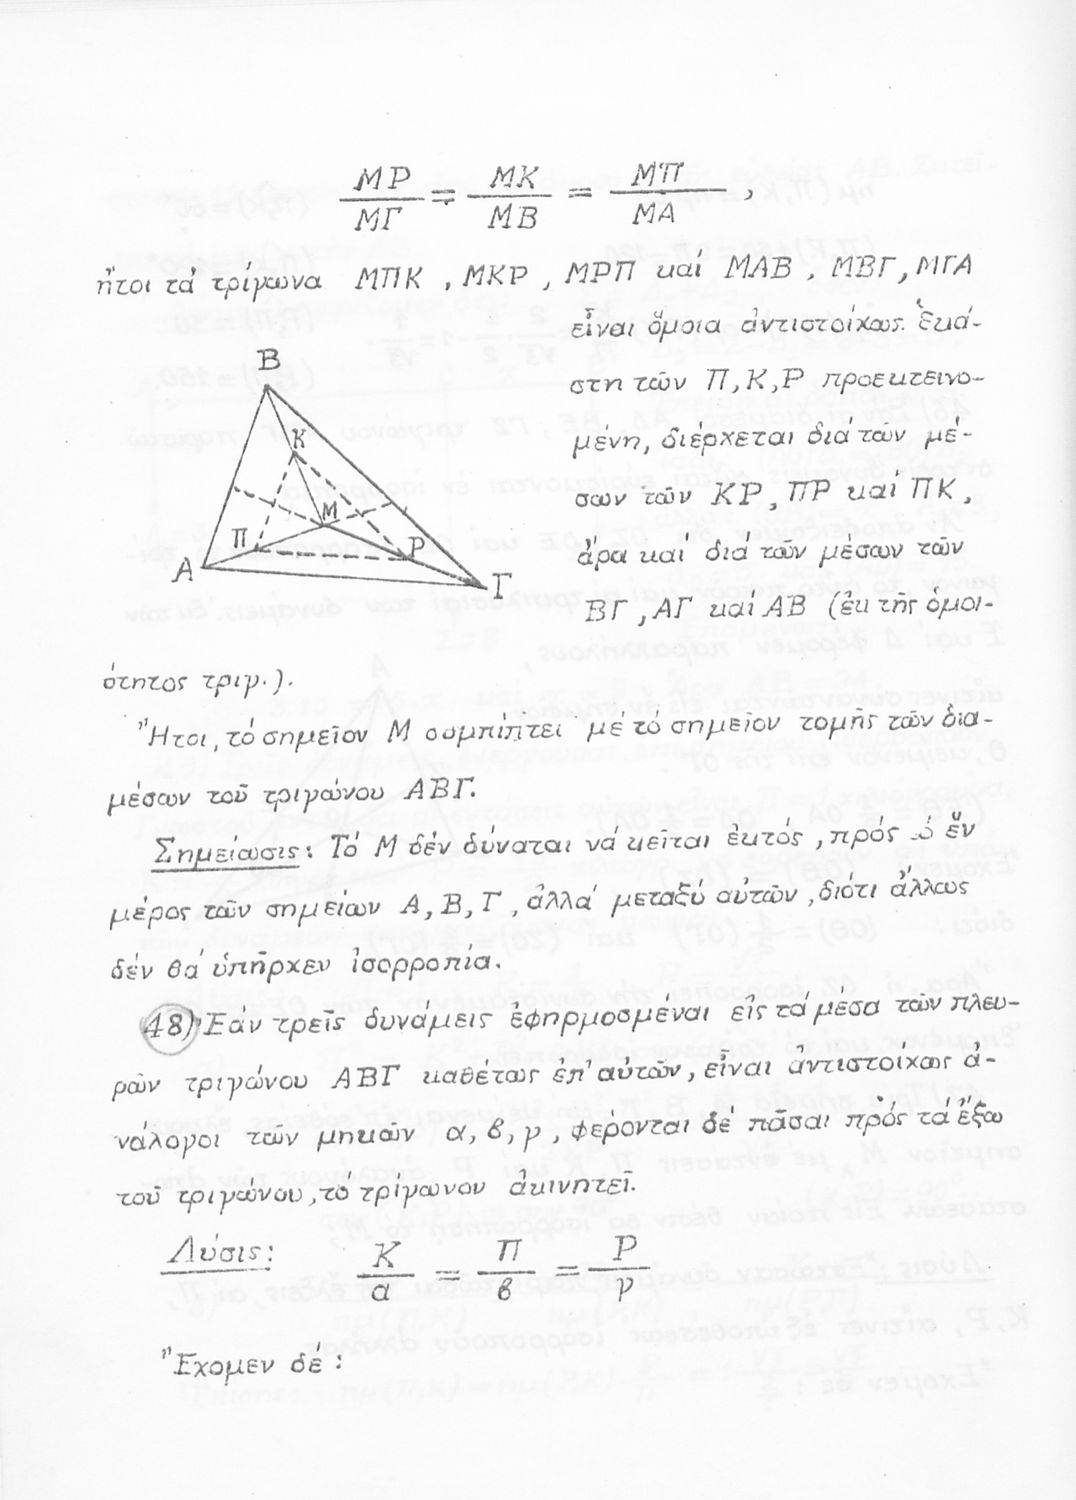 ΜΡ/ΜΓ = ΜΚ/ΜΒ = ΜΠ/ΜΑ ,
ἤτοι τά τρίγωνα ΜΠΚ , ΜΚΡ , ΜΡΠ καί ΜΑΒ , ΜΒΓ, ΜΓΑ
εἶναι ὅμοια ἀντιστοίχως. Ἑκά-
στη τῶν Π, Κ, Ρ προεκτεινο-
μένη, διέρχεται διά τῶν μέ-
σων τῶν ΚΡ, ΠΡ καί ΠΚ,
ἄρα καί διά τῶν μέσων τῶν
ΒΓ, ΑΓ καί ΑΒ (ἐκ τῆς ὁμοι-
Β
Κ
Μ
Π
Ρ
Α
Γ
ότητος τριγ.).
Ἤτοι, τό σημεῖον Μ συμπίπτει μέ τό σημεῖον τομῆς τῶν δια-
μέσων τοῦ τριγώνου ΑΒΓ.
Σημείωσις: Τό Μ δέν δύναται νά κεῖται ἐκτός, πρός τό ἕν
μέρος τῶν σημείων Α, Β, Γ, ἀλλά μεταξύ αὐτῶν, διότι ἄλλως
δέν θά ὑπῆρχεν ἰσορροπία.
48) Ἐάν τρεῖς δυνάμεις ἐφηρμοσμέναι εἰς τά μέσα τῶν πλευ-
ρῶν τριγώνου ΑΒΓ καθέτως ἐπ' αὐτῶν, εἶναι ἀντιστοίχως ἀ-
νάλογοι τῶν μηκῶν α, β, γ, φέρονται δέ πᾶσαι πρός τά ἔξω
τοῦ τριγώνου, τό τρίγωνον ἀκινητεῖ.
Λύσις: Κ/α = Π/β = Ρ/γ
Ἔχομεν δέ :